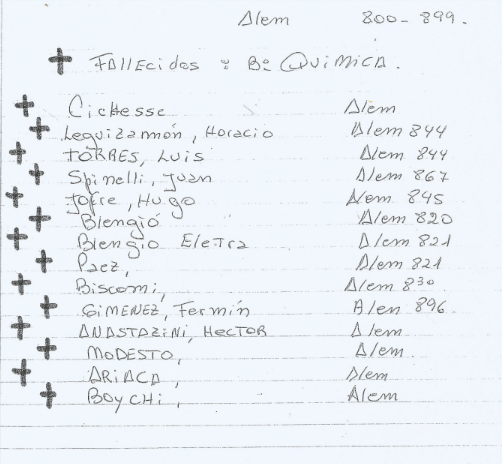 Alem 800-899.
Fallecidos : Bº Quimica.
Cichesse Alem
Leguizammón, Horacio Alem 844
TORRES, Luis Alem 844
Spinelli, Juan Alem 867
Jofre, Hugo Alem 845
Blengió Alem 820
Blengio Eletra Alem 821
Paez, Alem 821
Biscomi, Alem 830
GIMENEZ, Fermín Alen 896.
ANASTAZiNi, HECTOR Alem
MODESTO, Alem
ARIACA, Alem
BOYCHi, Alem